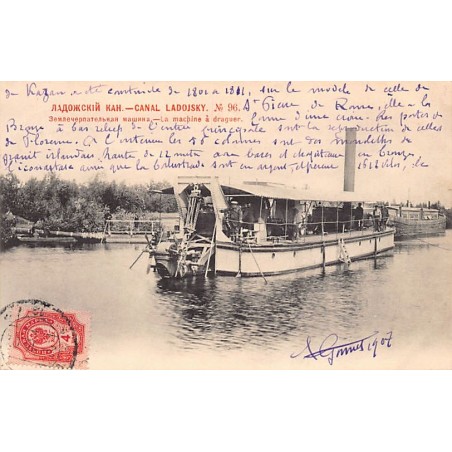 de Kazan a été construite de 1801 à 1811, sur le modèle de celle de
ЛАДОЖСКІЙ КАН.—CANAL LADOJSKY. № 96.
St Pierre de Rome, elle a la
Землечерпательная машина.—La machine à draguer.
forme d'une croix. Les portes de
Bronze à bas relief de l'entrée principale sont la reproduction de celles
de Florence. A l'intérieur les 56 colonnes sont des monolithes de
granit finlandais, hauts de 12 mètres avec bases et chapiteaux en bronze
l'iconostase ainsi que la balustrade sont en argent
1907